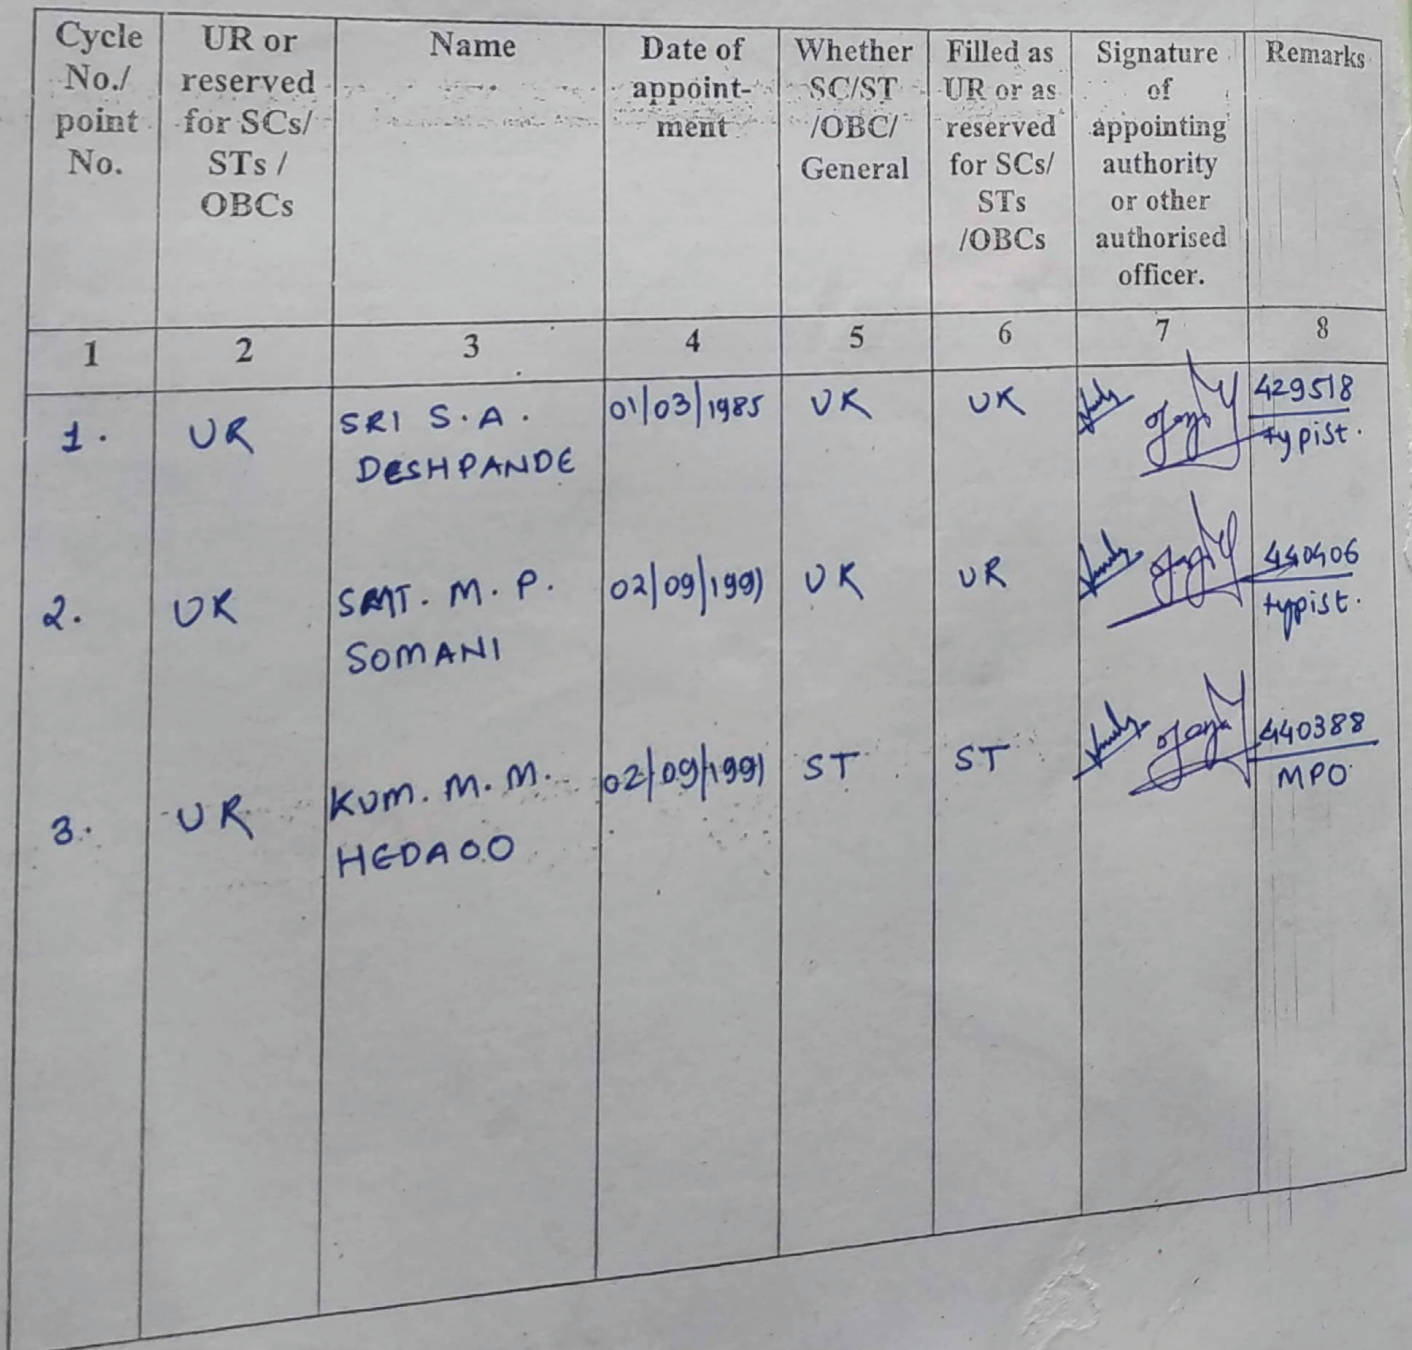 Cycle No./ point No.
UR or reserved for SCs/ STs / OBCs
Name
Date of appoint- ment
Whether SC/ST /OBC/ General
Filled as UR or as reserved for SCs/ STs /OBCs
Signature of appointing authority or other authorised officer.
Remarks
1 2 3 4 5 6 7 8
1. UR SRI S.A. 01/03/1985 UR UR 429518
DESHPANDE typist.
2. UR SMT. M. P. 02/09/1991 UR UR 440406
SOMANI typist.
3. UR KUM. M. M. 02/09/1991 ST ST 440388
HEDAOO MPO